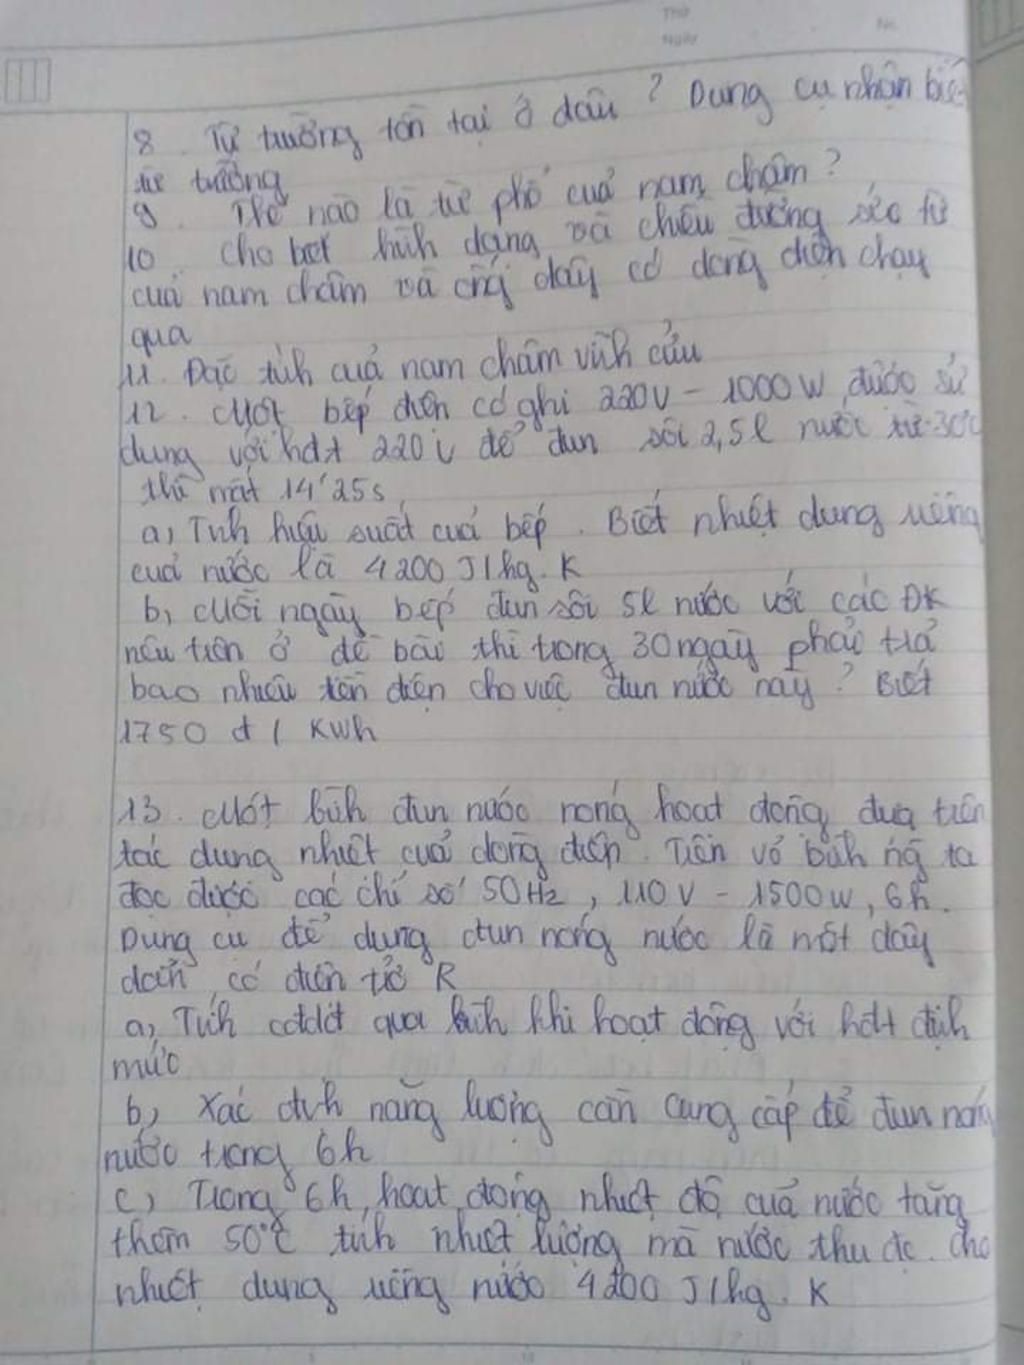 Thứ
No.
Ngày
8. Từ trường tồn tại ở đâu? Dụng cụ nhận biết
từ trường
9. Thế nào là từ phổ của nam châm?
10. Cho biết hình dạng và chiều đường sức từ
của nam châm và ống dây có dòng điện chạy
qua
11. Đặc tính của nam châm vĩnh cửu
12. Một bếp điện có ghi 220V - 1000W được sử
dụng với hđt 220V để đun sôi 2,5l nước từ 30°C
thì mất 14'25s
a, Tính hiệu suất của bếp. Biết nhiệt dung riêng
của nước là 4200 J/kg.K
b, Mỗi ngày bếp đun sôi 5l nước với các ĐK
nêu trên ở đề bài thì trong 30 ngày phải trả
bao nhiêu tiền điện cho việc đun nước này? Biết
1750 đ / KWh
13. Một bình đun nước nóng hoạt động dựa trên
tác dụng nhiệt của dòng điện. Trên vỏ bình ng ta
đọc được các chỉ số 50Hz, 110V - 1500W, 6h.
Dụng cụ để dùng đun nóng nước là một dây
dẫn có điện trở R
a, Tính cđdđ qua bình khi hoạt động với hđt định
mức
b, Xác định năng lượng cần cung cấp để đun nóng
nước trong 6h
c, Trong 6h hoạt động nhiệt độ của nước tăng
thêm 50°C tính nhiệt lượng mà nước thu đc. Cho
nhiệt dung riêng nước 4200 J/kg.K